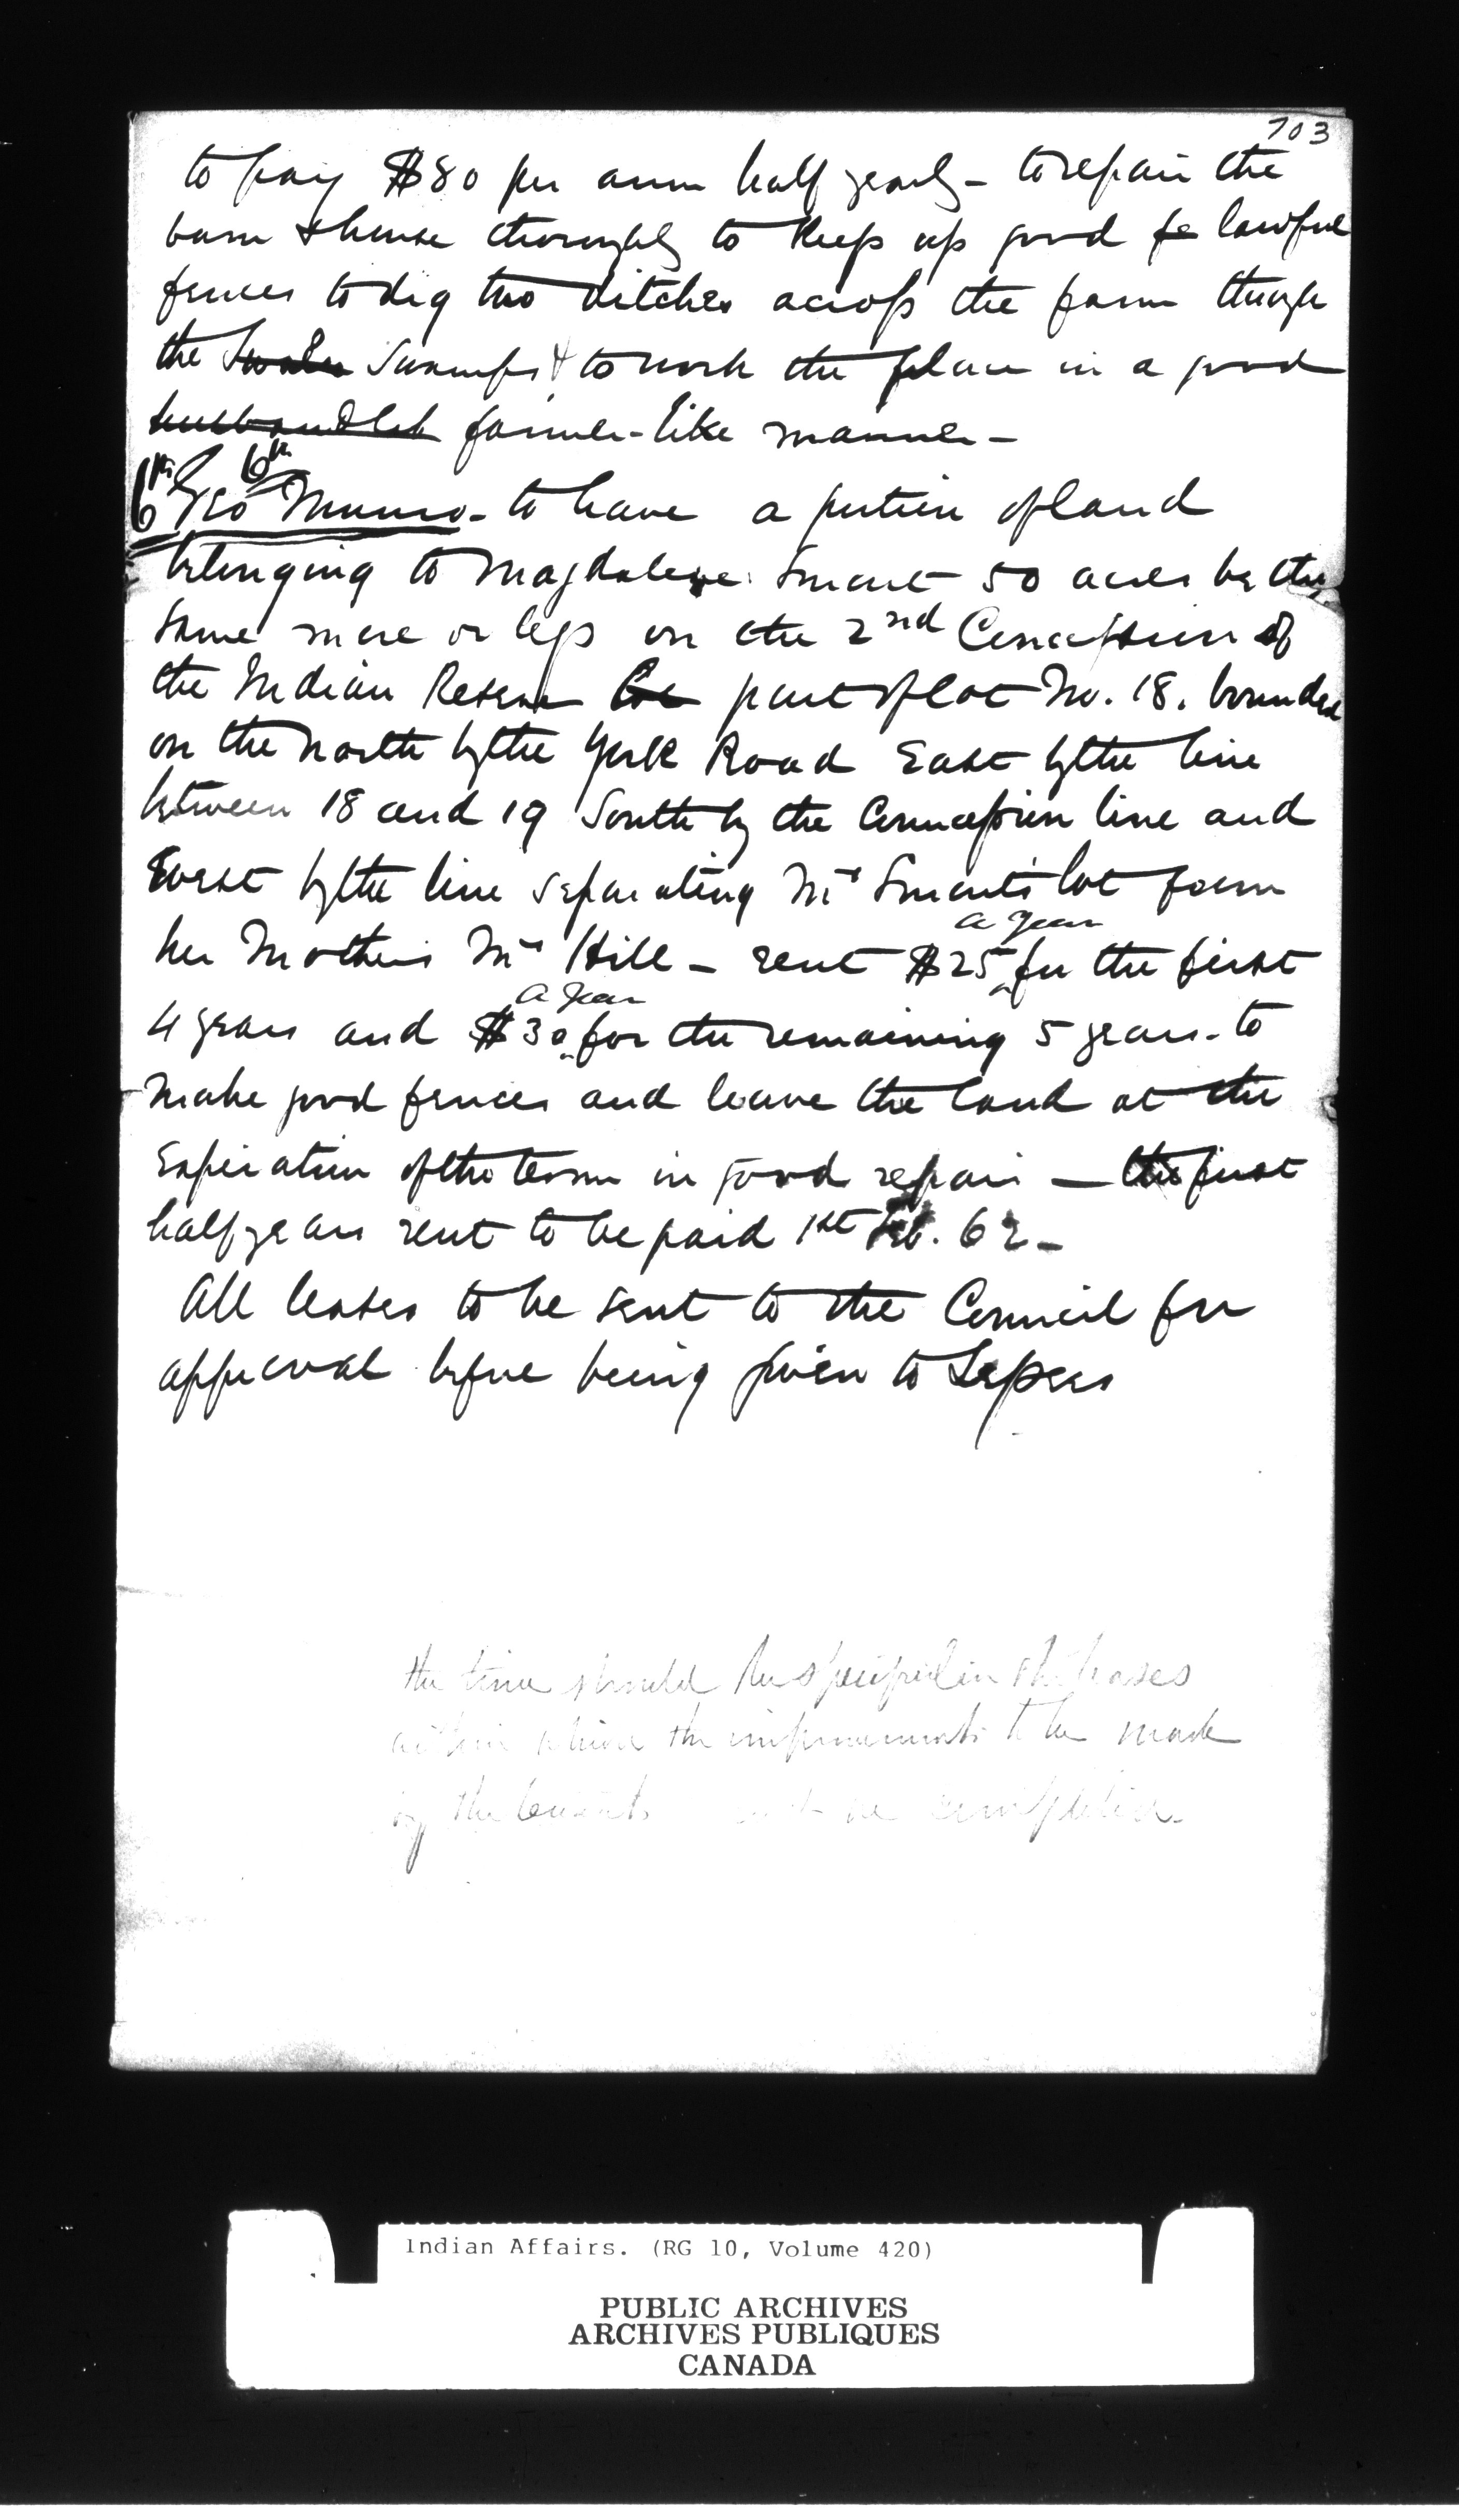 703
to pay $80 per ann half yearly - to repair the
barn & house thoroughly to keep up good fe lawful
fences to dig two ditches across the farm through
the Swale Swamps & to work the place in a good
farmer-like manner -
6th Geo Munro - to have a portion of land
belonging to Magdalene Smart 50 acres be the
same more or less on the 2nd Concession of
the Indian Reserve Lot part of lot No. 18. bounded
on the North by the York Road East by the line
between 18 and 19 South by the Concession line and
West by the line separating Mrs Smarts lot from
her Mothers Mrs Hill - rent $25 a year for the first
4 years and $30 a year for the remaining 5 years - to
make good fences and leave the land at the
Expiration of the term in good repair — the first
half years rent to be paid 1st Feb. 62 -
All leases to be sent to the Council for
approval before being given to Lessees
the time should be specified in the leases
within which the improvements to be made
by the tenants be completed.
Indian Affairs. (RG 10, Volume 420)
PUBLIC ARCHIVES
ARCHIVES PUBLIQUES
CANADA